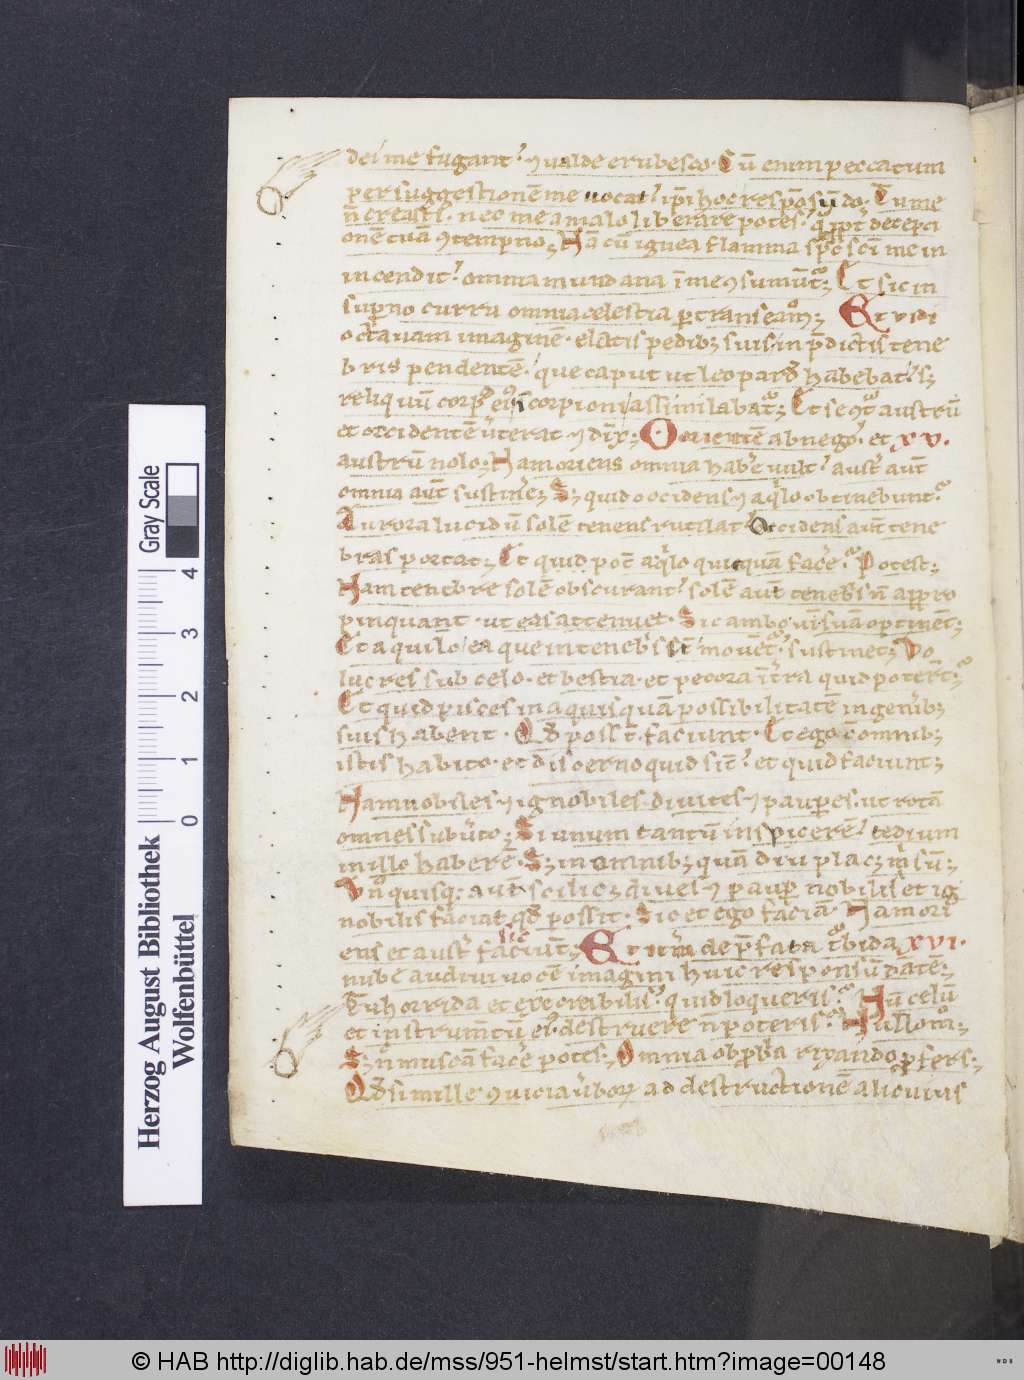 dei me fugant. ⁊ ualde erubesco. Cū enim peccatum
per suggestionē me uocat. ip̄i hoc respōsū do. Tu me
n̄ creasti. nec me a malo liberare potes. decepci
onē tuā ꝯtempno. Nā cū ignea flamma sp̄c sc̄i me in
incendit. omnia mundana ī me ꝯsumūt. Et sic in
sup̄no curru omnia celestia ꝑtranseam. Et vidi
octauam imaginē. elatis pedibꝫ suis in p̄dictis tene
bris pendentē. que caput ut leopard habebat. sꝫ
reliquū corp̄ ei scorpioni assimilabat. Et se ꝯt austrū
et occidentē ūterat ⁊ dix. Orientē abnego. et XV.
austrū nolo. Nam oriens omnia hab̄e uult. aust̄ aut̄
omnia aut̄ sustin̄e. Sꝫ quid occidens ⁊ aq̄lo obtinebunt.
Aurora lucidū solē tenens rutilat. Occidens aut̄ tene
bras portat. Et quid pot̄ aq̄lo quicquā fac̄e. Potest.
Nam tenebre solē obscurant. solē aut̄ teneb̄s n̄ appro
pinquant. ut eas attenuet. Sic ambo uī suā optinēt.
Et aquilo ea que in teneb̄s mouēt. sustinet. Uo
lucres sub celo. et bestia. et pecora ī t̄ra quid poter̄t.
Et quid pisces in aquis quā possibilitatē in gen̄ibꝫ
suis habent. Qd̄ poss̄t. faciunt. Et ego ī omnibꝫ
istis habito. et discerno quid sīt. et quid faciunt.
Nam nobiles ⁊ ignobiles. diuites ⁊ paup̄es. ut rotā
omnes subūto. Si unum tantū inspicerē. tedium
in illo haberē. Sꝫ in omnibꝫ quādiu placꝫ m̄ sū.
Vn̄quisqꝫ aut̄ scilicꝫ diues ⁊ paup̄ nobilis et ig
nobilis faciat qd̄ possit. Sic et ego faciā. Nam ori
ens et aust̄ sic faciūt. Et it̄m de p̄fata t̄bida XVI.
nube audiui uocē imagini huic responsū datē.
Tu horrida et execrabilis. quid loqueris. Nū celū
et instrum̄tū ei destruere n̄ poteris. Nullom.
Sꝫ n̄ muscā fac̄e potes. Omnia obp̄bia rixando ꝓfers.
Qd̄ si mille ꝯuicia ūboꝝ ad destructionē alicuius
Herzog August Bibliothek
Wolfenbüttel
Gray Scale
0 1 2 3 4
© HAB http://diglib.hab.de/mss/951-helmst/start.htm?image=00148